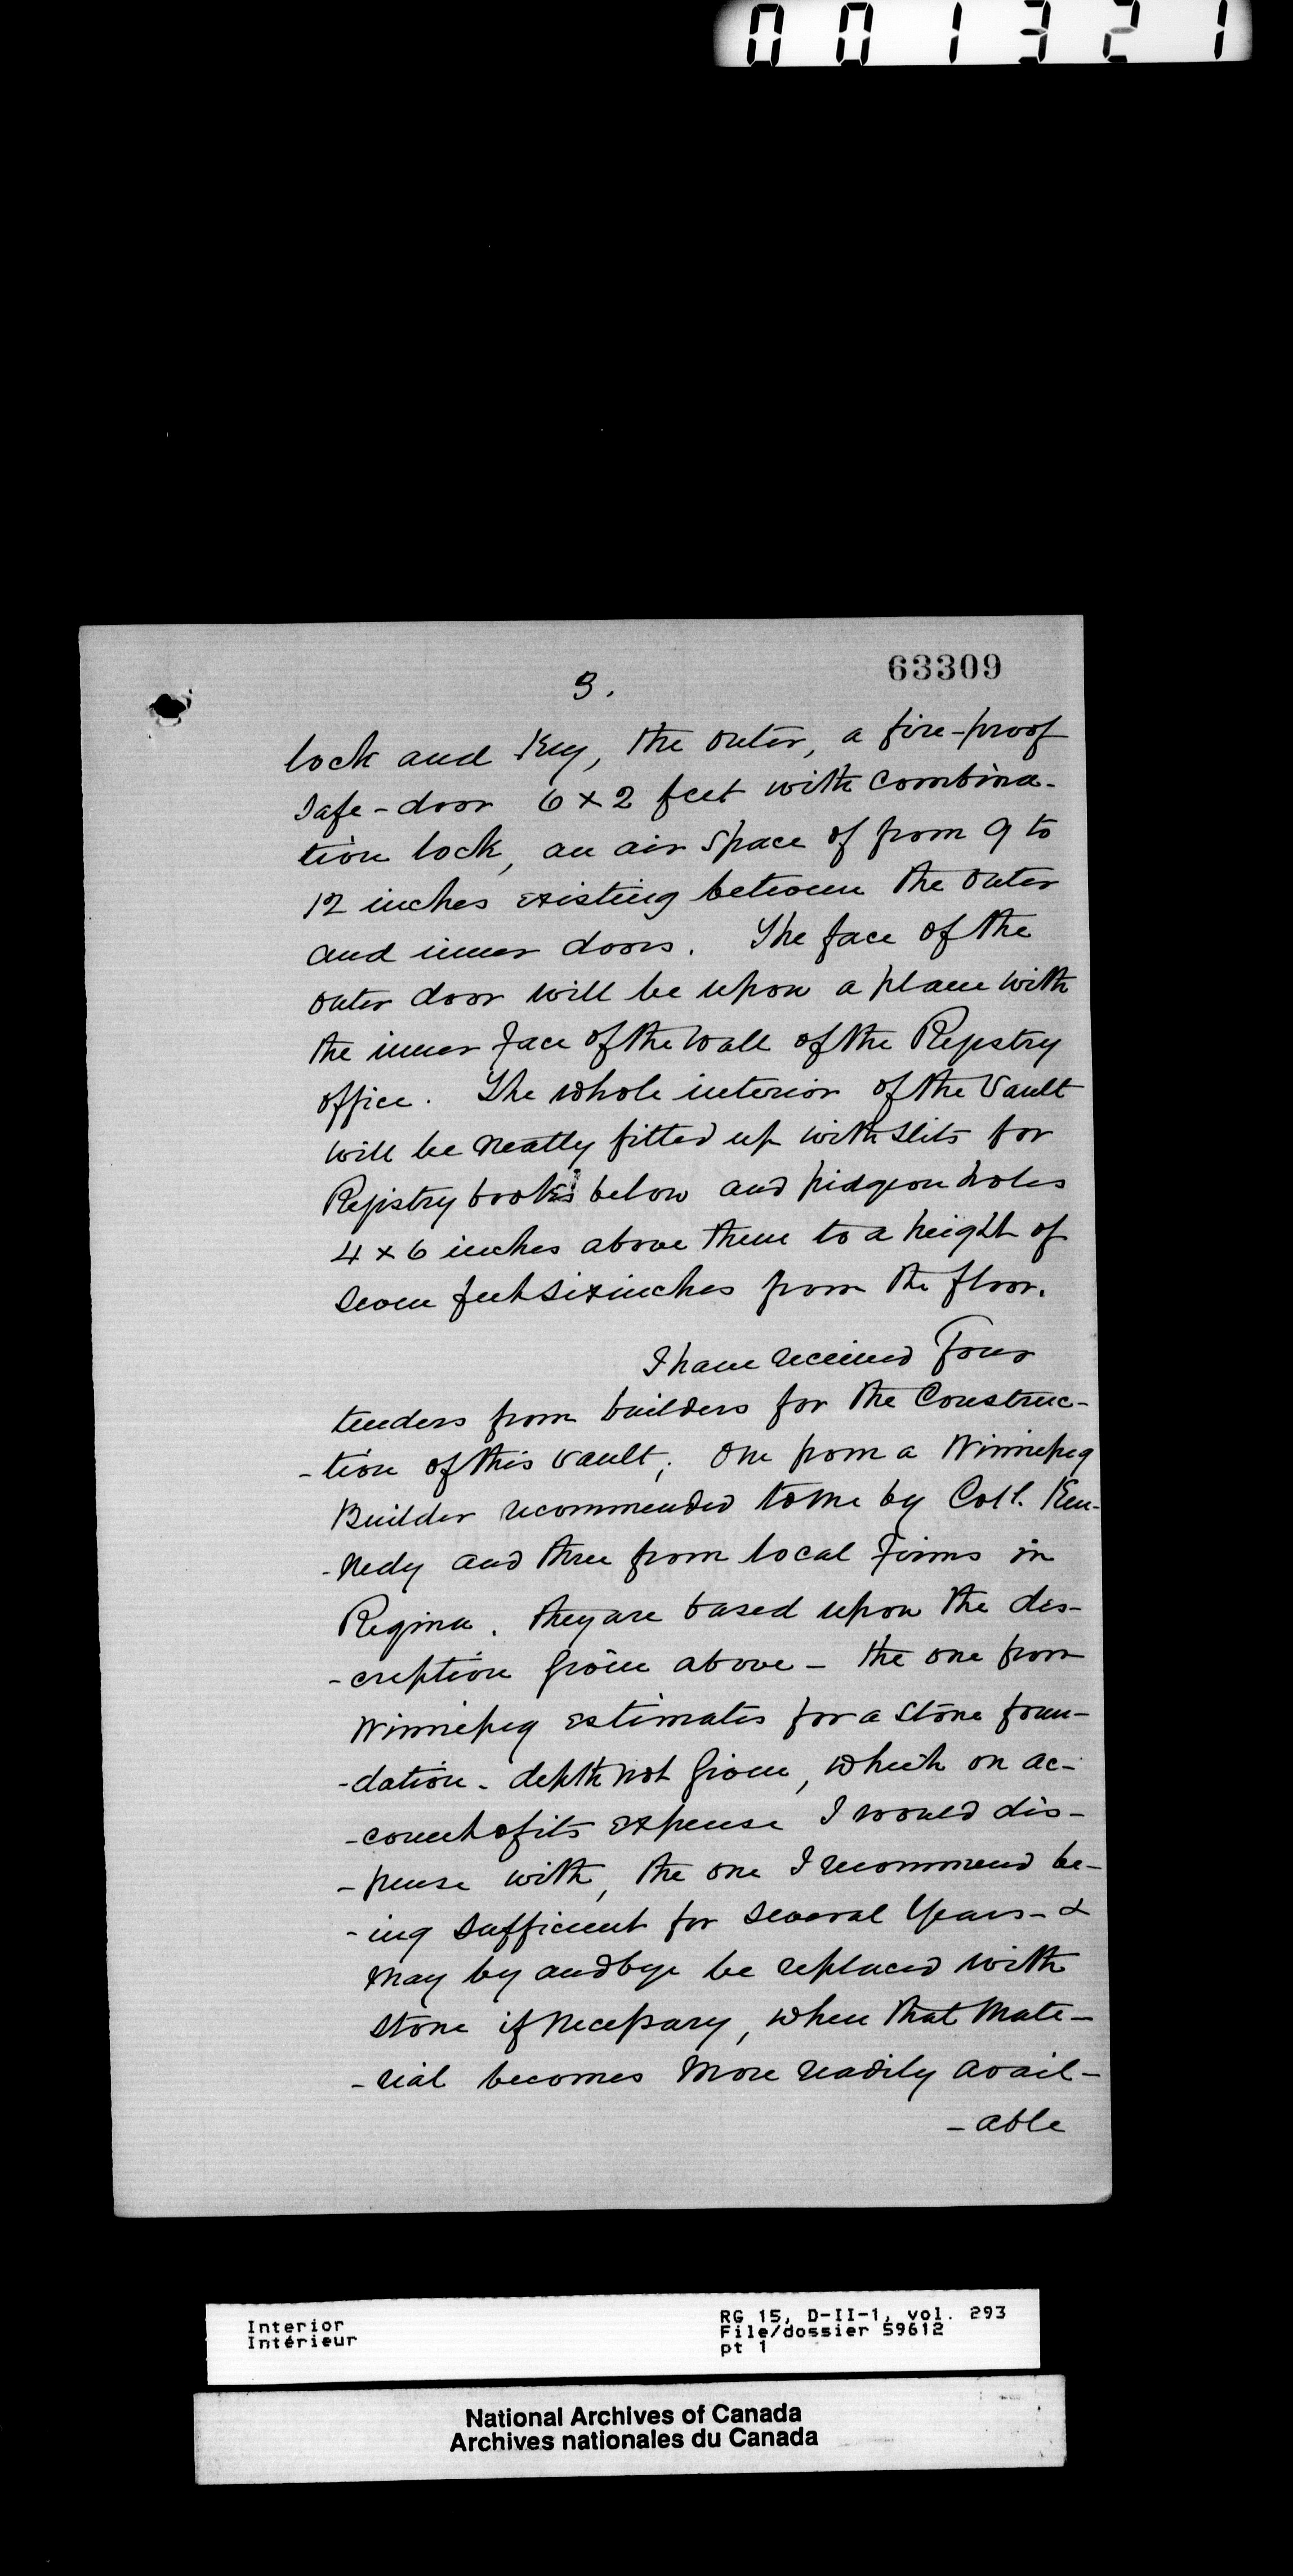 001321
63309
3.
lock and Key, the outer, a fire-proof
safe-door 6 x 2 feet with Combina-
tion lock, an air space of from 9 to
12 inches existing between the outer
and inner doors. The face of the
outer door will be upon a plane with
the inner face of the wall of the Registry
office. The whole interior of the Vault
will be neatly fitted up with slits for
Registry books below and pidgeon holes
4 x 6 inches above them to a height of
seven feet six inches from the floor.
I have received Four
tenders from builders for the Construc-
-tion of this vault; One from a Winnipeg
Builder recommended to me by Col. Ken-
-nedy and three from local Firms in
Regina. they are based upon the des-
-cription given above - the one from
Winnipeg estimates for a stone foun-
-dation - depth not given, which on ac-
-count of its expense I would dis-
-pense with, the one I recommend be-
-ing sufficient for several Years - &
may by and bye be replaced with
stone if necessary, when that Mate-
-rial becomes More readily avail-
-able
Interior
Intérieur
RG 15, D-II-1, vol. 293
File/dossier 59612
pt 1
National Archives of Canada
Archives nationales du Canada